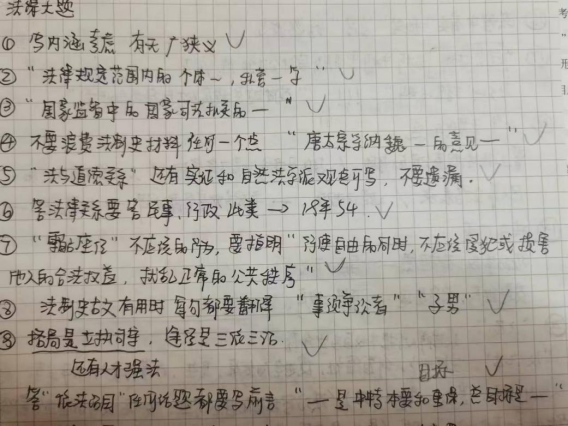 法律大题
① 写内涵考虑 有无广狭义
② "法律规定范围内的个体一,扎营一字"
③ "国家监督中的国家司法机关的一"
④ 不要浪费法制史材料任何一个点 "唐太宗采纳魏一的意见一"
⑤ "法与道德关系" 还有实证和自然法学派观点可写,不要遗漏.
⑥ 答法律关系要答民事、行政此类 → 19年54.
⑦ "霸座" 不应该的行为,要指明"行使自由的同时,不应该侵犯或损害
他人的合法权益,扰乱正常的公共秩序"
⑧ 法制史古文有用时 每句都要翻译 "事须争讼者" "子男"
⑨ 格局是立执司守,途径是三依三治.
还有人才强法 目标
答"依法治国"任何话题都要写前言 "一是中特本要和重保,总目标是一"